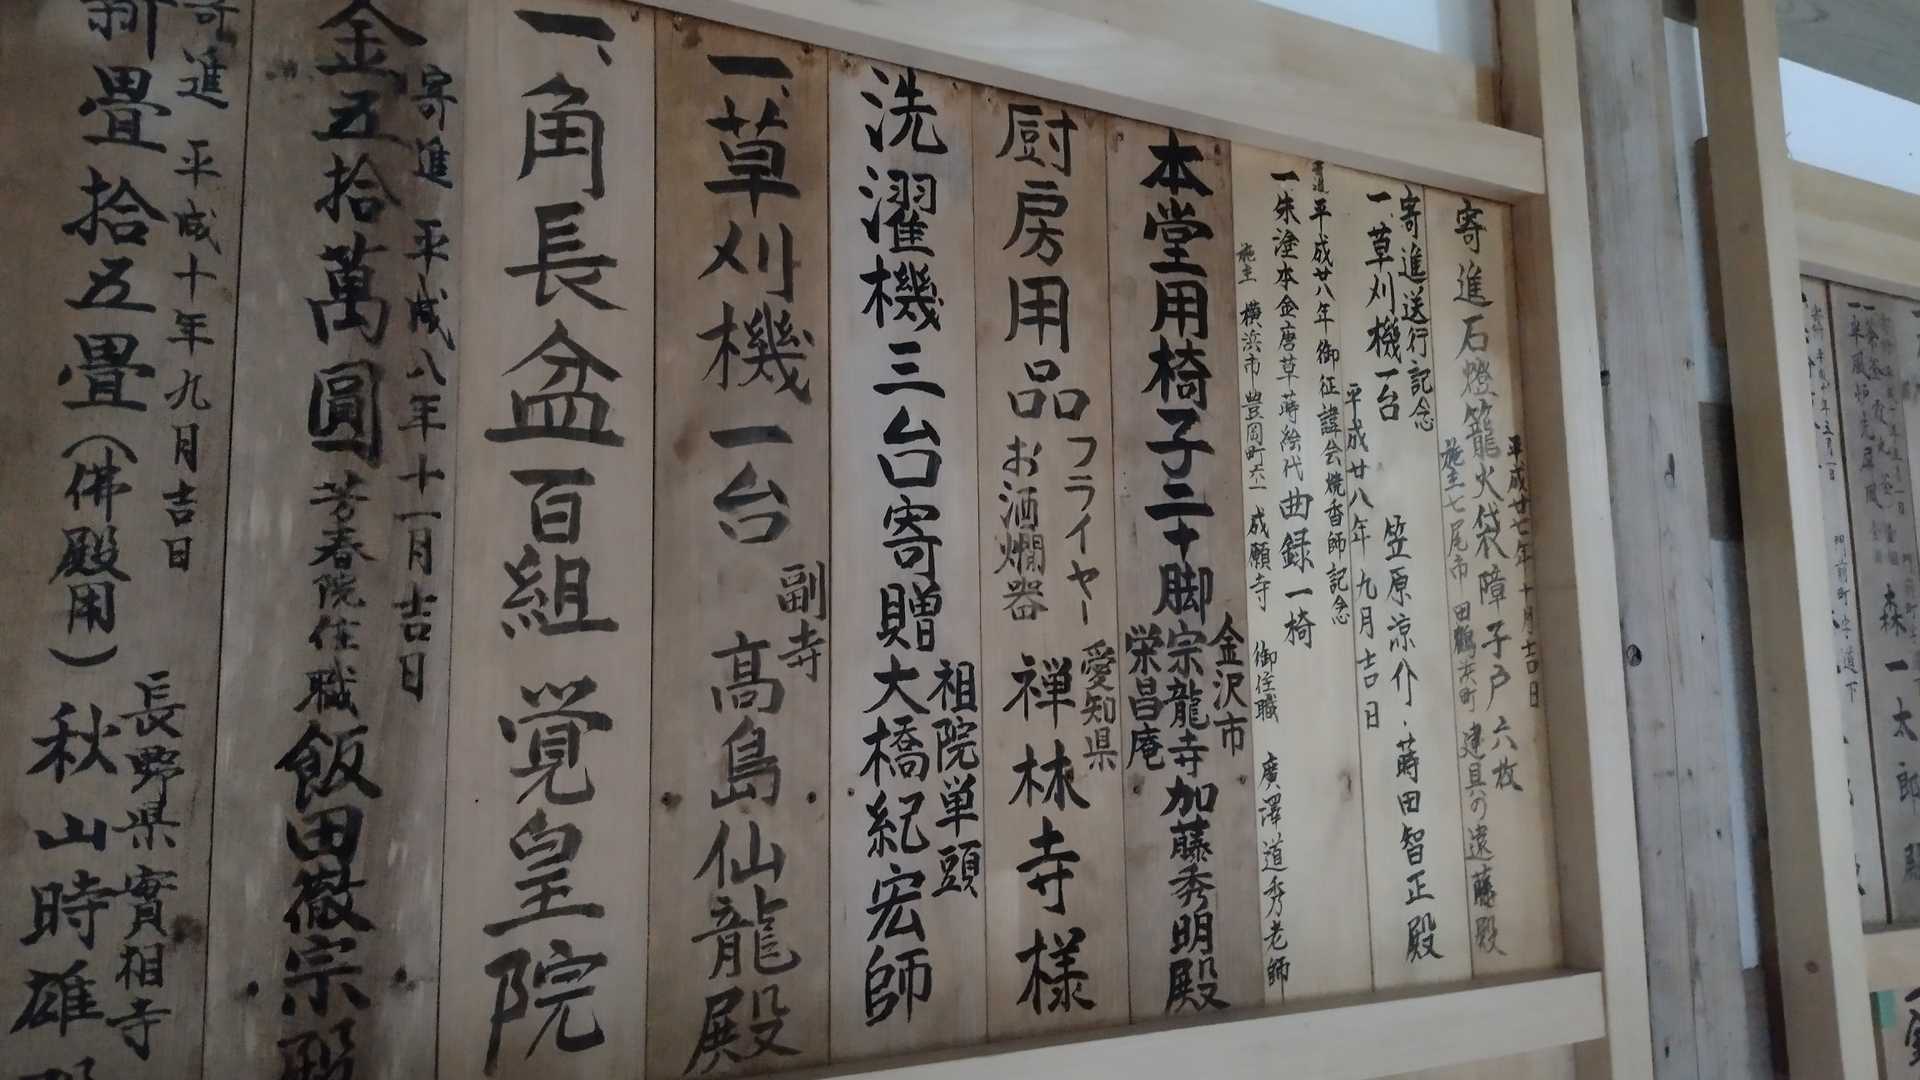 平成廿七年十月吉日
寄進石燈籠火袋障子戸六枚
施主七尾市 田鶴浜町 建具の遠藤殿
寄進送行記念
一、草刈機一台 笠原涼介・蒔田智正殿
平成廿八年九月吉日
平成廿八年御征諱会焼香師記念
一、朱塗本金唐草蒔絵代曲録一椅
施主 横浜市豊岡町六ー一 成願寺 御住職 廣澤道秀老師
本堂用椅子二十脚
金沢市
宗龍寺加藤秀明殿
栄昌庵
厨房用品
フライヤー
お酒燗器
愛知県
禅林寺様
洗濯機三台寄贈
祖院単頭
大橋紀宏師
一、草刈機一台
副寺
高島仙龍殿
一、角長盆百組 覚皇院
寄進 平成八年十一月吉日
金五拾萬圓 芳春院住職 飯田徹宗殿
寄進 平成十年九月吉日
新畳拾五畳(佛殿用)
長野県實相寺
秋山時雄殿